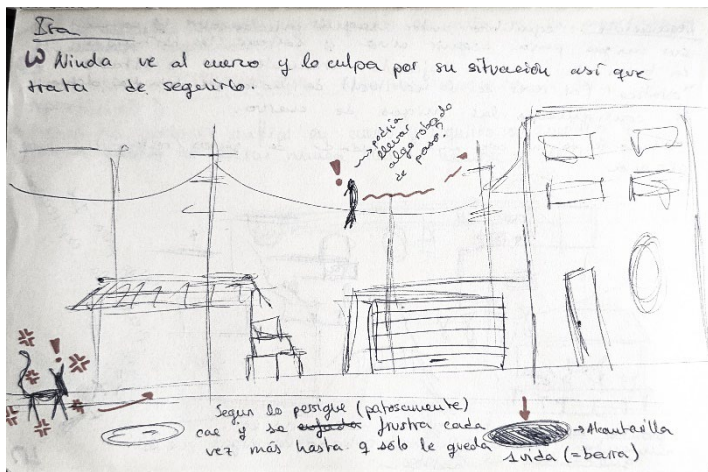 Ira
Ninda ve al cuervo y lo culpa por su situación así que
trata de seguirlo.
→ podría
llevar
algo robado
de paso?
!
!
Segun lo persigue (patosamente)
cae y se enfada frustra cada
vez más hasta q sólo le queda
1 vida (=barra)
→ Alcantarilla